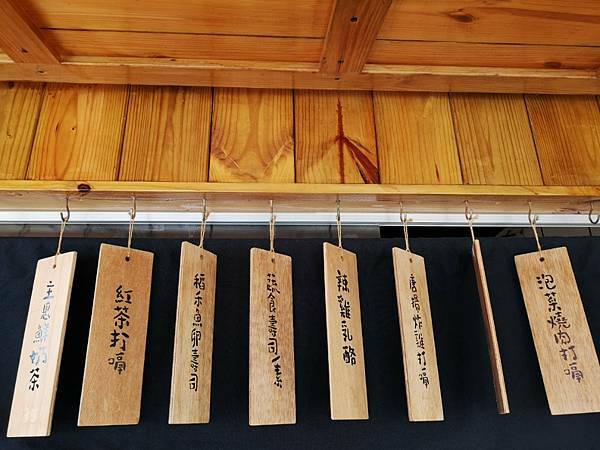 主恩鮮奶茶
紅茶打嗝
稻禾魚卵壽司
蔬食壽司/素
辣雞乳酪
唐揚炸雞打嗝
泡菜燒肉打嗝